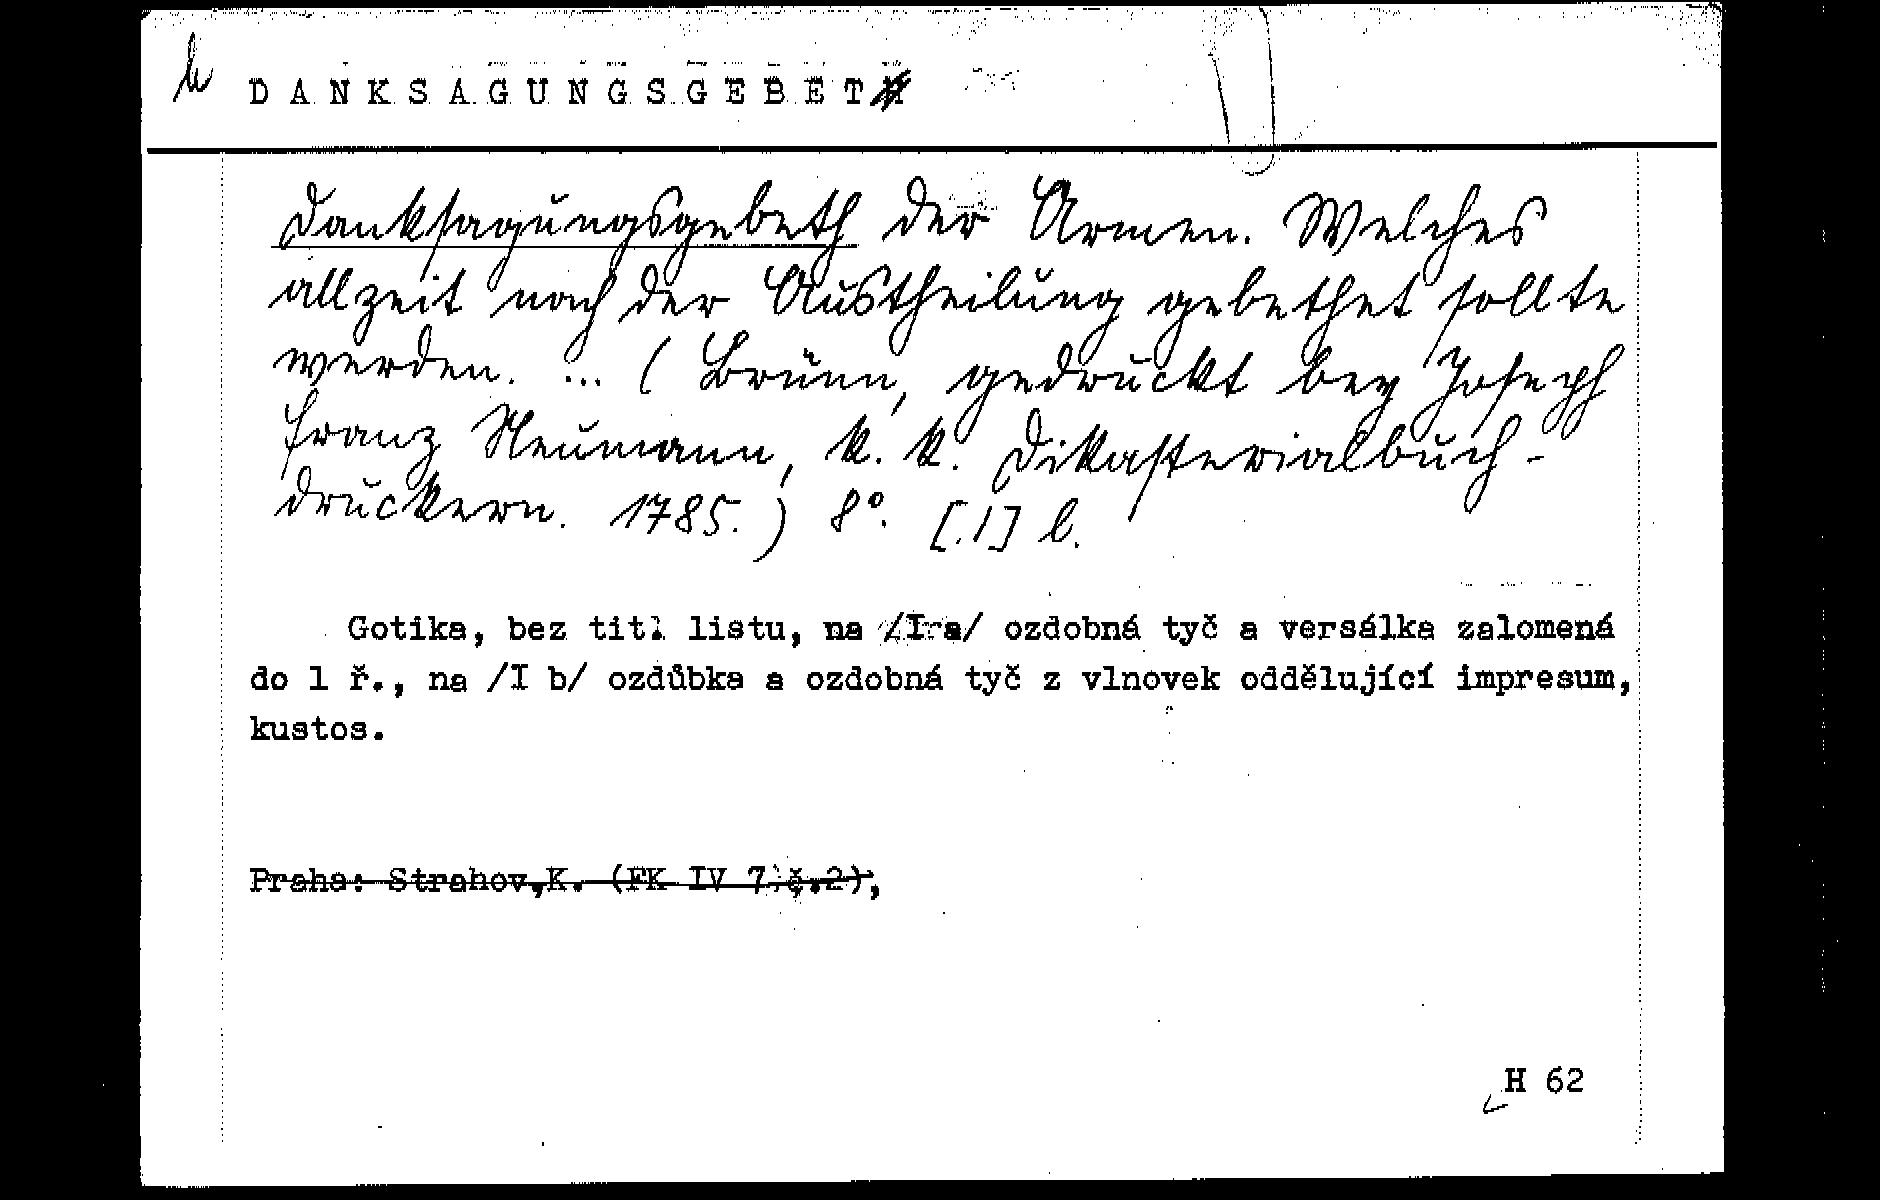 DANKSAGUNGSGEBET
Danksagungsgebeth der Armen. Welches
allzeit nach der Austheilung gebethet sollte
werden. ... (Brünn, gedruckt bey Joseph
Franz Neumann, k. k. Dikasterialbuch-
druckern. 1785.) 8°. [1] l.
Gotika, bez titl listu, na /I a/ ozdobná tyč a versálka zalomená
do 1 ř., na /I b/ ozdůbka a ozdobná tyč z vlnovek oddělující impresum,
kustos.
Praha: Strahov,K. (FK IV 7 č.2),
H 62